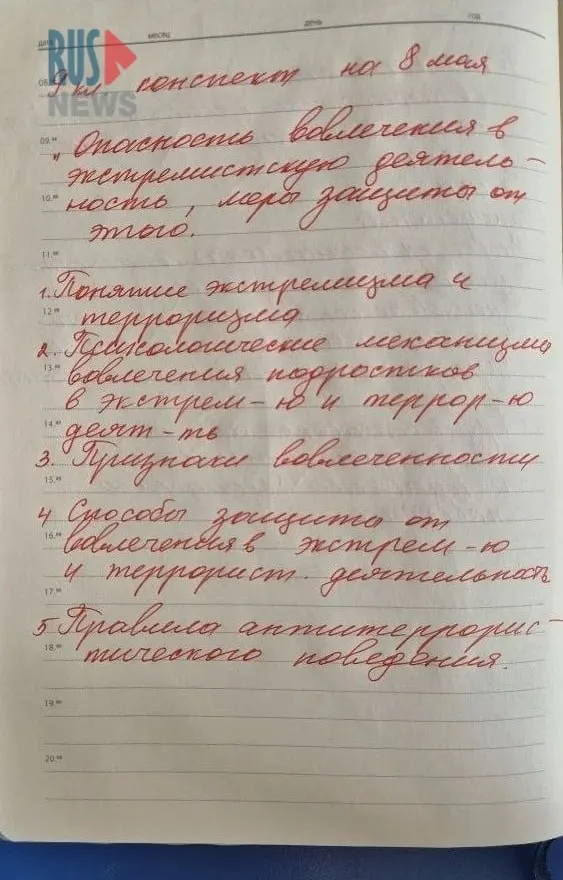 дата
месяц
день
год
RUS
NEWS
08.00
9 кл конспект на 8 мая
09.00
" Опасность вовлечения в
экстремистскую деятель-
10.00
ность, меры защиты от
этого.
11.00
1. Понятие экстремизма и
12.00
терроризма
2. Психологические механизмы
13.00
вовлечения подростков
в экстрем-ю и террор-ю
14.00
деят-ть
3. Признаки вовлеченности
15.00
4 Способы защиты от
16.00
вовлечения в экстрем-ю
и террорист. деятельность
17.00
5 Правила антитеррорис-
18.00
тического поведения.
19.00
20.00